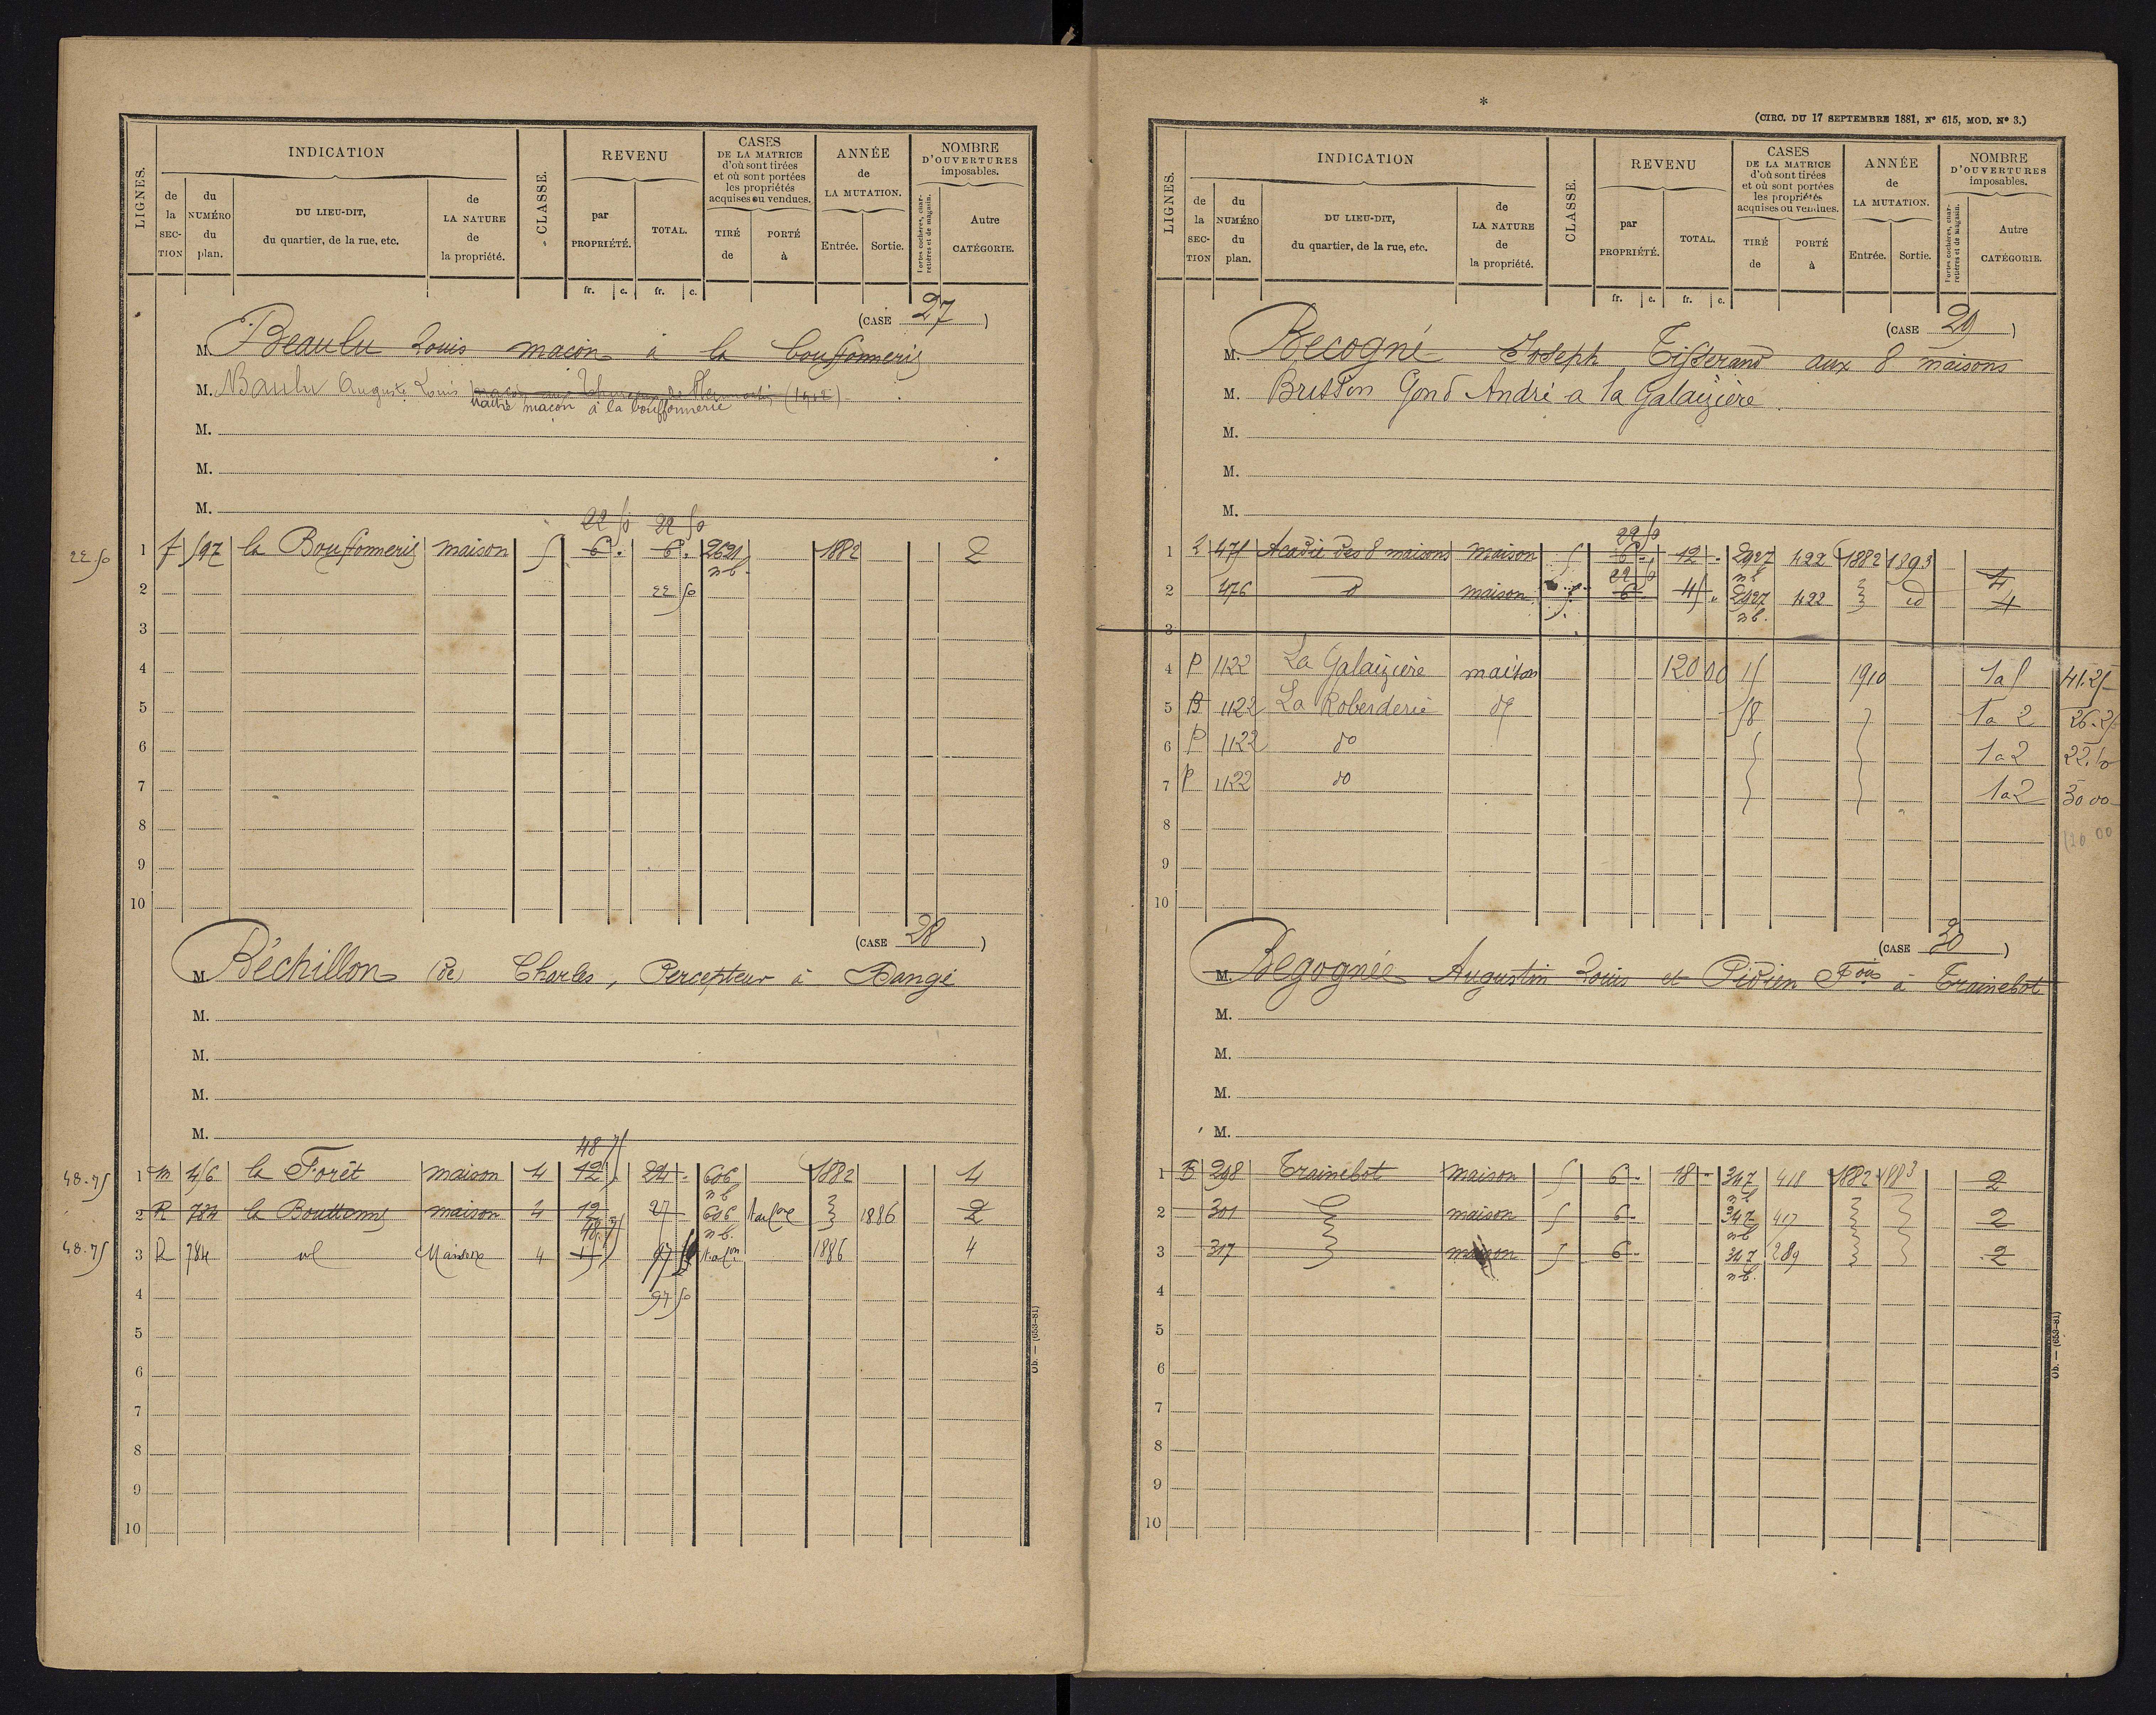 LIGNES.
INDICATION
de la SECTION
du NUMÉRO du plan.
DU LIEU-DIT, du quartier, de la rue, etc.
de LA NATURE de la propriété.
CLASSE.
REVENU
par PROPRIÉTÉ.
TOTAL.
CASES DE LA MATRICE d'où sont tirées et où sont portées les propriétés acquises ou vendues.
TIRÉ de
PORTÉ à
ANNÉE de LA MUTATION.
Entrée.
Sortie.
NOMBRE D'OUVERTURES imposables.
Portes cochères, charretières et de magasin.
Autre CATÉGORIE.
fr. c. fr. c.
(CASE 27)
M. Beaulu Louis maçon à la bouffonnerie
M. Baulu Auguste Louis (1412)
maçon à la bouffonnerie
M.
M.
M.
22 50 22 50
22 50 1 f 597 la Bouffonnerie maison 5 6 . 6 . 2621 n b. 1882 2
2 22 50
3
4
5
6
7
8
9
10
(CASE 28)
M. Béchillon (de) Charles, Percepteur à Dangé
M.
M.
M.
M.
48 75
48.75 1 m 456 la Forêt maison 4 12 24 606 n b 1882 4
2 R 784 la maison 4 12 27 606 n b. 1886 2
48 75
48.75 3 R 784 id Maison 4 15 1886 4
4 97 50
5
6
7
8
9
10
Ob. — (653-81)
*
(CIRC. DU 17 SEPTEMBRE 1881, N° 615, MOD. N° 3.)
LIGNES.
INDICATION
de la SECTION
du NUMÉRO du plan.
DU LIEU-DIT, du quartier, de la rue, etc.
de LA NATURE de la propriété.
CLASSE.
REVENU
par PROPRIÉTÉ.
TOTAL.
CASES DE LA MATRICE d'où sont tirées et où sont portées les propriétés acquises ou vendues.
TIRÉ de
PORTÉ à
ANNÉE de LA MUTATION.
Entrée.
Sortie.
NOMBRE D'OUVERTURES imposables.
Portes cochères, charretières et de magasin.
Autre CATÉGORIE.
fr. c. fr. c.
(CASE 29)
M. Becogné Joseph Tisserand aux 8 maisons
M. Brisson Gond André a la Galaizière
M.
M.
M.
22 50
1 2 475 Acadie des 8 maisons maison 5 6 . 12 . 2927 n b 422 1882 1893 4
22 50
2 476 d maison 5 6 45 . 2927 n b. 422 id 4
3
4 P 1122 La Galaizière maison 120 00 15 1910 1 a 5 41.25
5 B 1122 La Roberderie do 58 1 a 2 26.25
6 P 1122 do 1 a 2 22.50
7 P 1122 do 1 a 2 30 00
8 120 00
9
10
(CASE 30)
M. Begognée Augustin Louis et Pidien Fois à Trainebot
M.
M.
M.
M.
1 B 298 Trainebot maison 5 6 . 18 . 347 n b 418 1882 1883 2
2 301 maison 5 6 . 347 n b 417 2
3 317 maison 5 6 . 347 n b. 289 2
4
5
6
7
8
9
10
Ob. — (653-81)